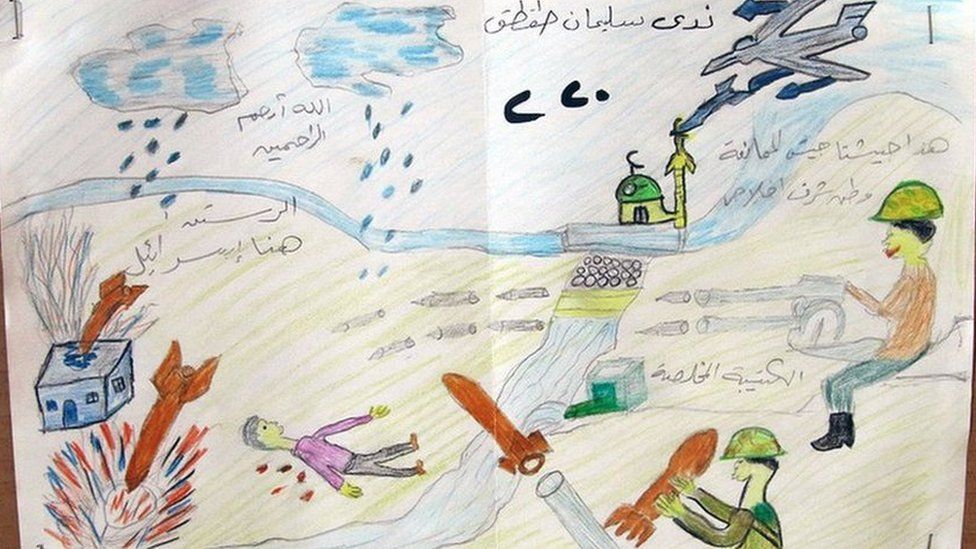 ندى سليمان طقطق
الله أرحم
الراحمين
هدا جيشنا جيش للممانعة
وطن شرف اخلاص
الرستن
هنا إسرائيل
الكتيبة المخلصة